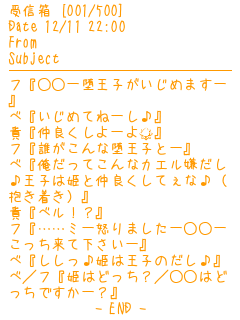 受信箱 [001/500]
Date 12/11 22:00
From
Subject
フ『○○ー堕王子がいじめますー
』
ベ『いじめてねーし♪』
貴『仲良くしよーよ』
フ『誰がこんな堕王子とー』
ベ『俺だってこんなカエル嫌だし
♪王子は姫と仲良くしてぇな♪（
抱き着き）』
貴『ベル！？』
フ『……ミー怒りましたー○○ー
こっち来て下さいー』
ベ『ししっ♪姫は王子のだし♪』
ベ／フ『姫はどっち？／○○はど
っちですかー？』
- END -